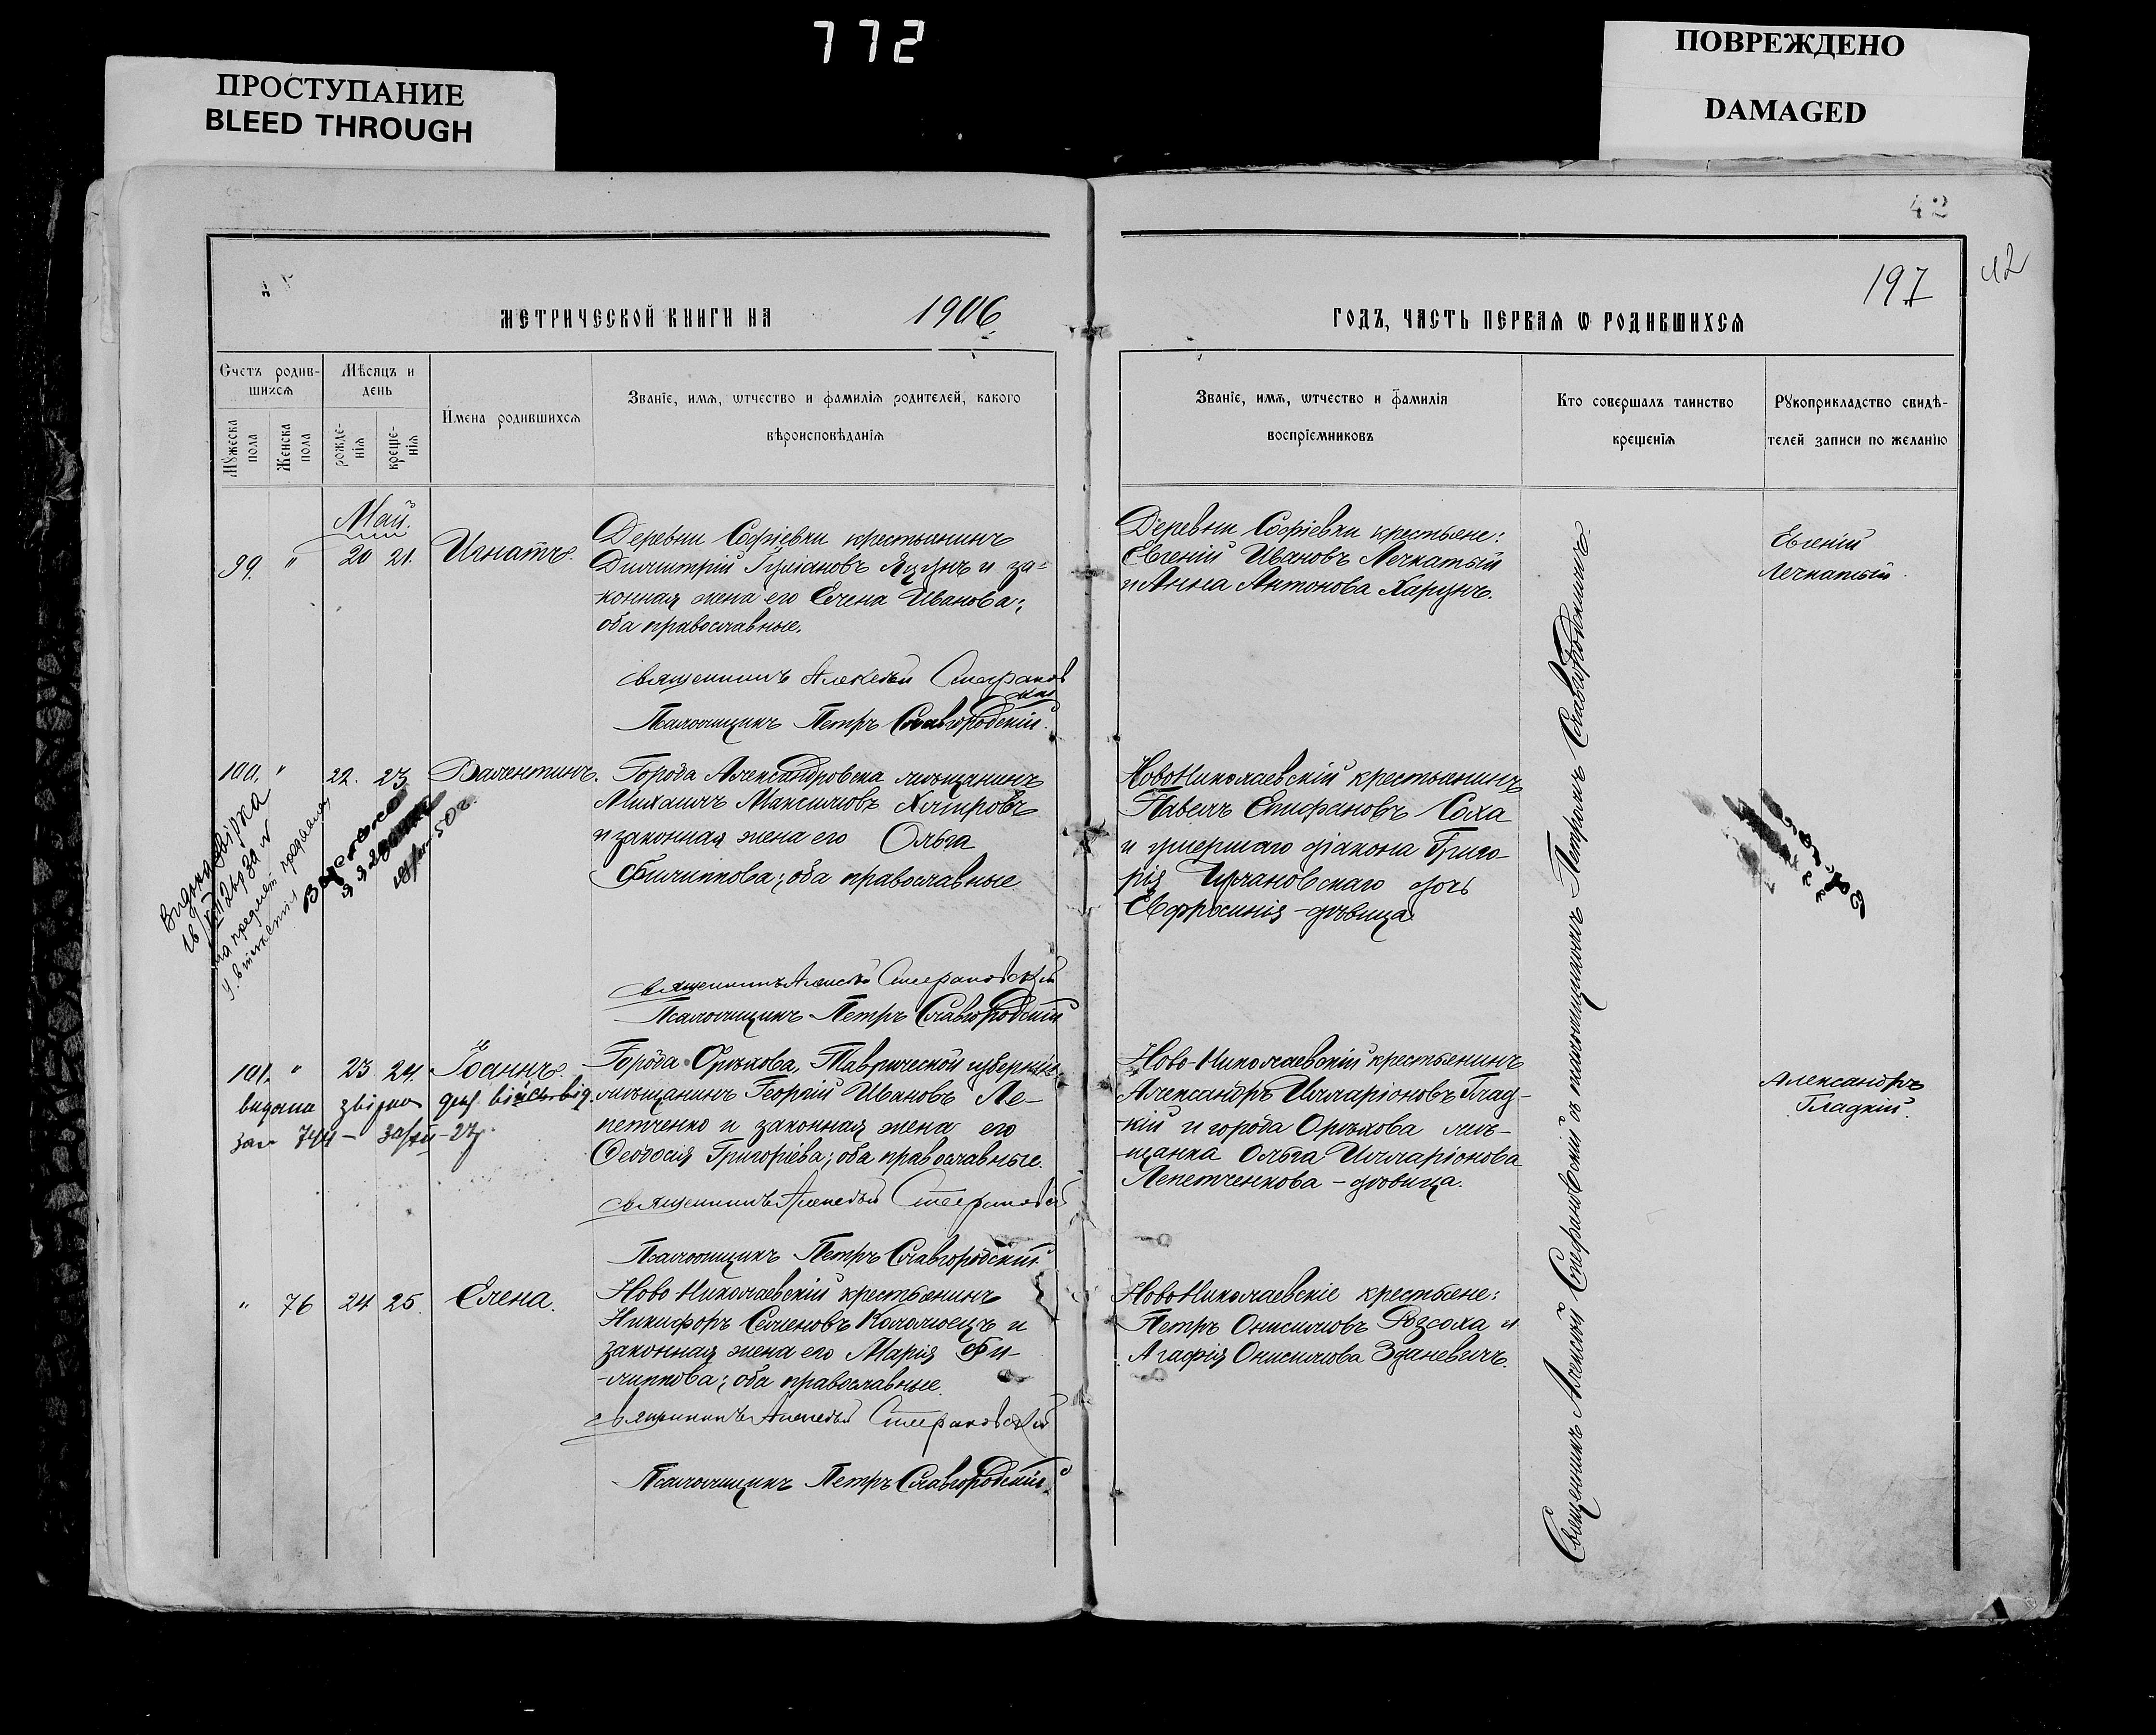 772
ПРОСТУПАНИЕ
BLEED THROUGH
ПОВРЕЖДЕНО
DAMAGED
42
42
197
МЕТРИЧЕСКОЙ КНИГИ НА 1906
ГОДЪ, ЧАСТЬ ПЕРВАЯ Ѡ РОДИВШИХСЯ
Счетъ родив-
шихся
Мужеска пола
Женска пола
Мѣсяцъ и
день
рожде-
нія
креще-
нія
Имена родившихся
Званіе, имя, ѿтчество и фамилія родителей, какого
вѣроисповѣданія
Званіе, имя, ѿтчество и фамилія
воспріемниковъ
Кто совершалъ таинство
крещенія
Рукоприкладство свидѣ-
телей записи по желанію
Май.
99. " 20 21. Игнатъ.
Деревни Софіевки крестьянинъ
Димитрій и за-
конная жена его Елена Иванова;
оба православные.
Священникъ Алексѣй Стефановскій
Псаломщикъ Петръ Славгородскій.
Деревни Софіевки крестьяне:
Евгеній Ивановъ Легкатый
и Анна Антонова Харунъ.
Евгеній
Легкатый.
100. " 22. 23 Валентинъ.
Города Александровска мѣщанинъ
Михаилъ Максимовъ
и законная жена его Ольга
Филиппова; оба православные
Священникъ Алексѣй Стефановскій
Псаломщикъ Петръ Славгородскій
НовоНиколаевскій крестьянинъ
Павелъ Епифановъ Соха
и умершаго діакона Григо-
рія дочь
Евфросинія - дѣвица.
101. " 23 24. Іоаннъ.
видана
744
Города Орѣхова, Таврической губерніи
мѣщанинъ Георгій Ивановъ Ле-
петченко и законная жена его
Ѳеодосія Григоріева; оба православные.
Священникъ Алексѣй Стефановскій
Псаломщикъ Петръ Славгородскій
Ново-Николаевскій крестьянинъ
Александръ Илларіоновъ Глад-
-кій и города Орѣхова мѣ-
-щанка Ольга Илларіонова
Лепетченкова - дѣвица.
Александръ
Гладкій.
" 76 24 25. Елена.
Ново Николаевскій крестьянинъ
Никифоръ Семеновъ Коломоецъ и
законная жена его Марія Фи-
-липпова; оба православные.
Священникъ Алексѣй Стефановскій
Псаломщикъ Петръ Славгородскій
НовоНиколаевскіе крестьяне:
Петръ Онисимовъ Розсоха и
Агафія Онисимова Зданевичъ.
Священникъ Алексѣй Стефановскій съ псаломщикомъ Петромъ Славгородскимъ.